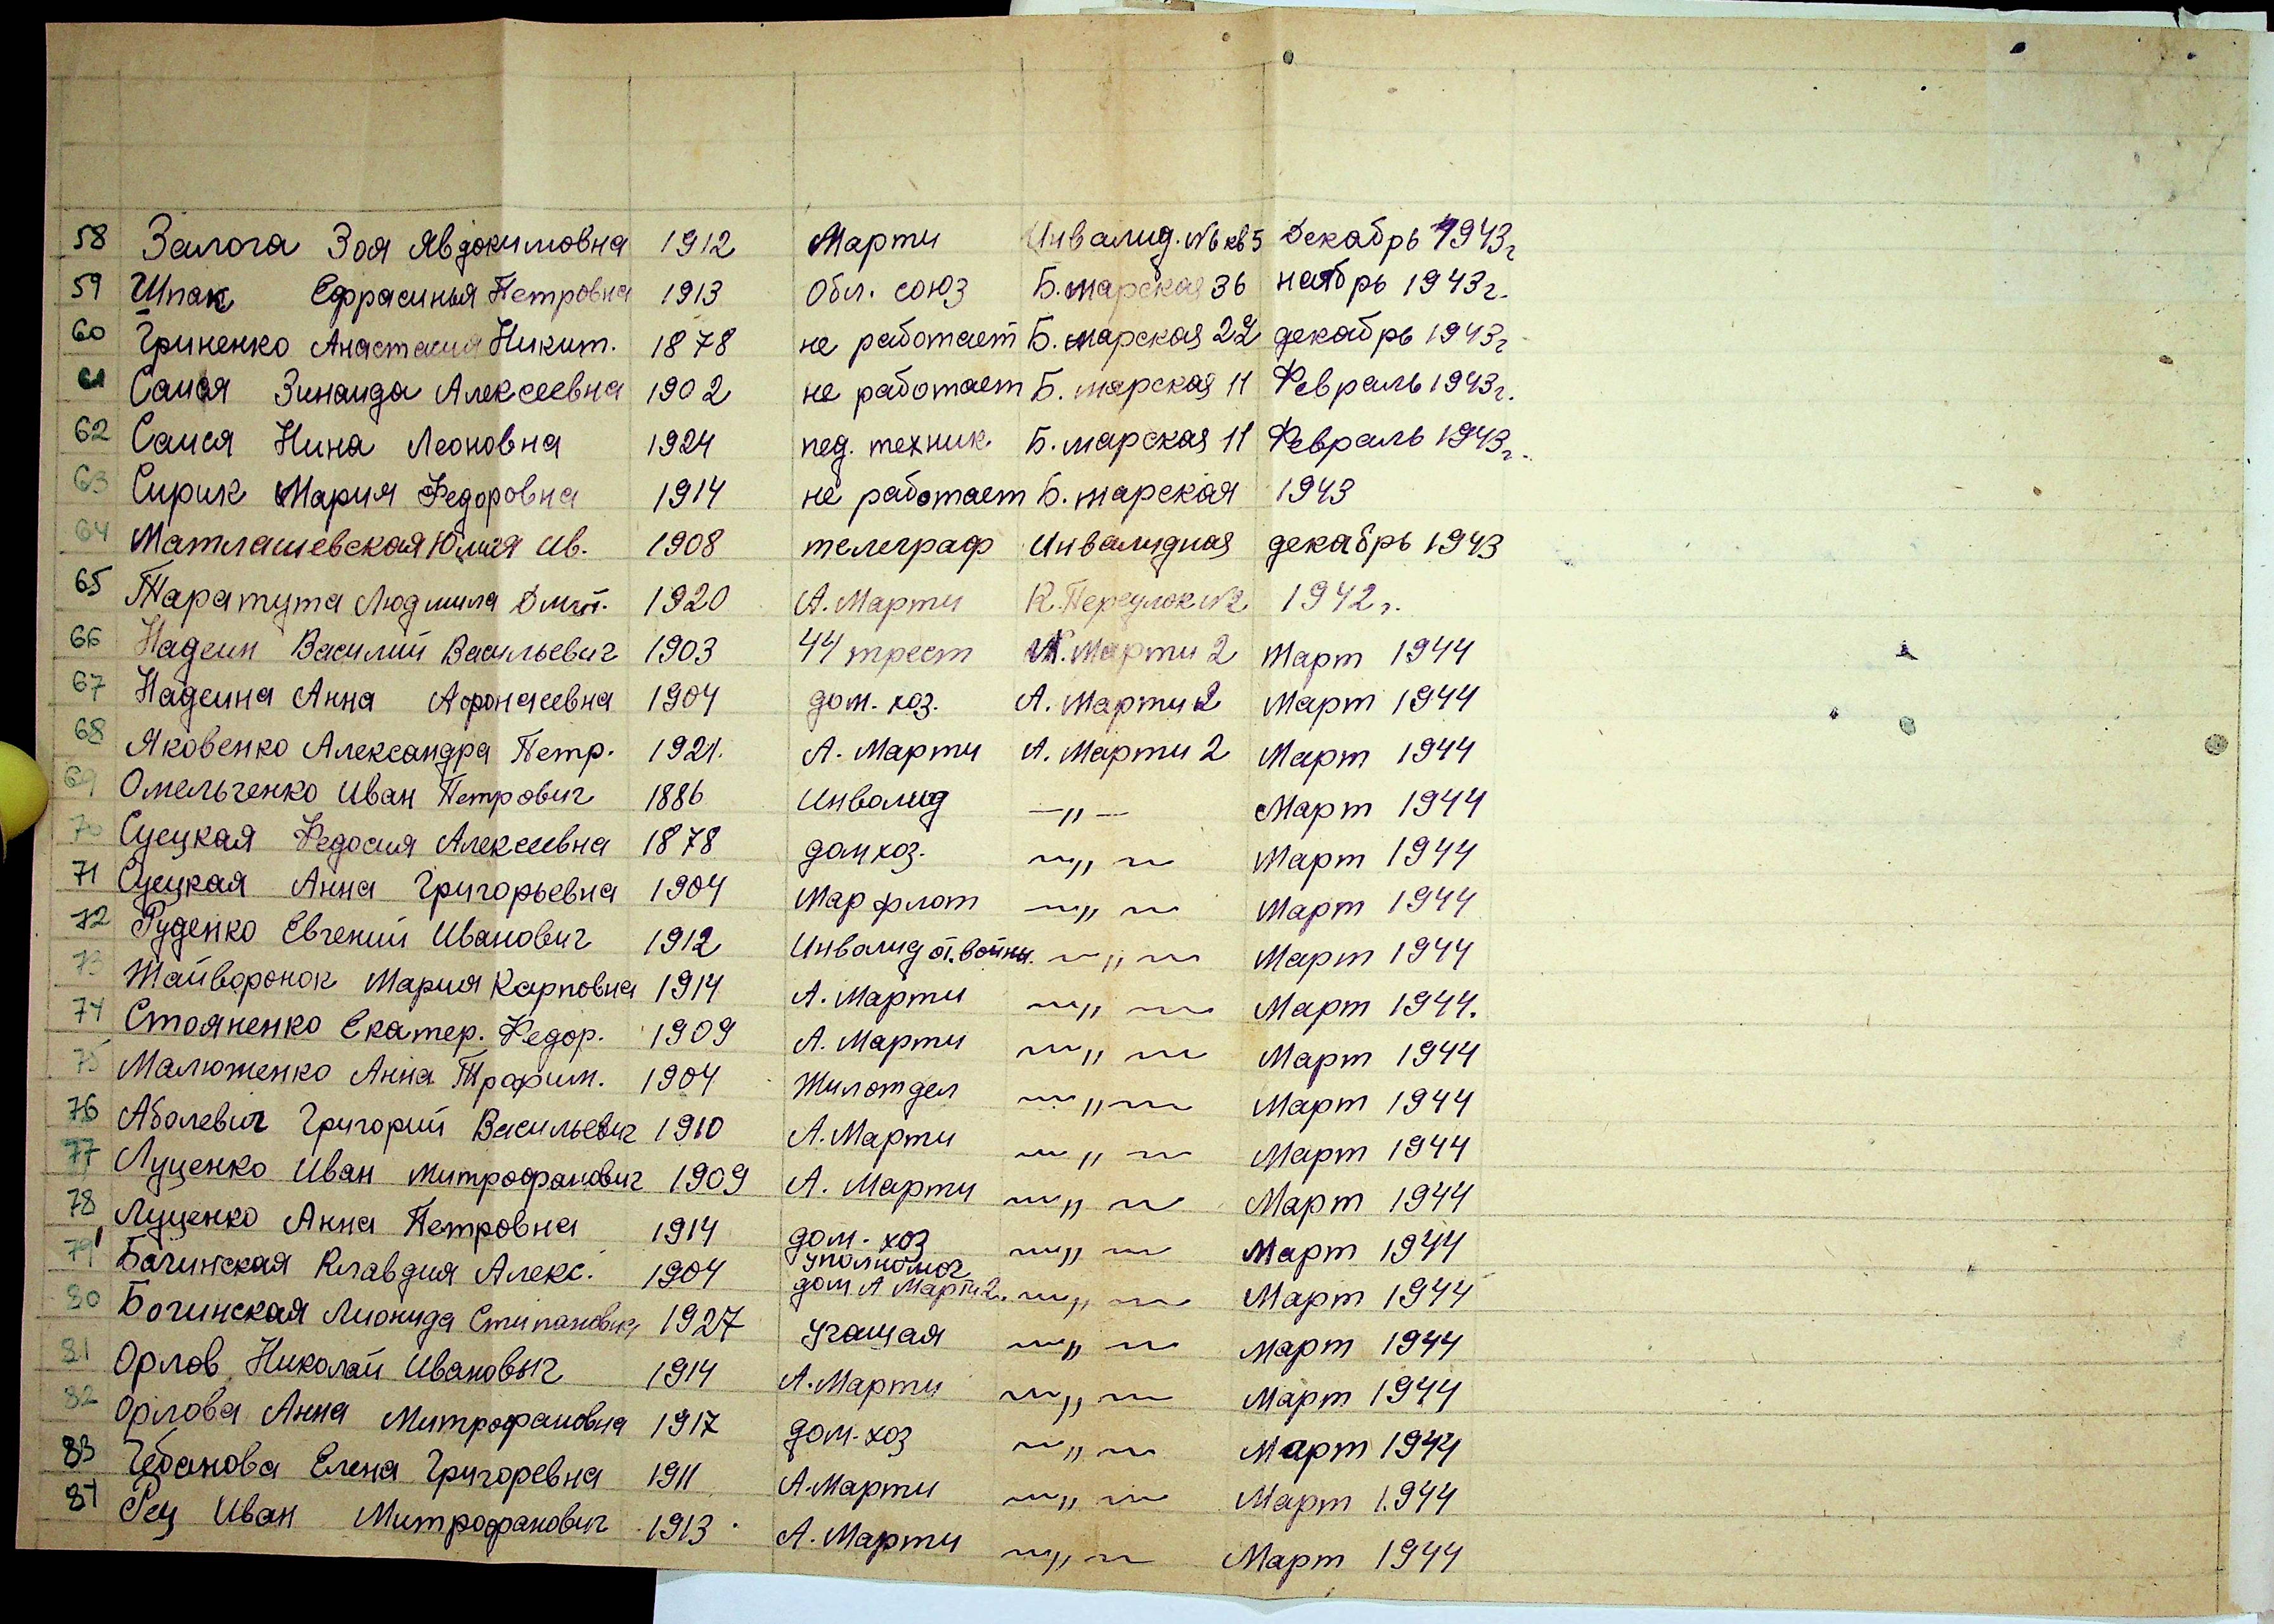 58 Залога Зоя Явдокимовна 1912 Марти Инвалид. №6 кв 5 Декабрь 1943г
59 Шпак Ефрасинья Петровна 1913 Обл. союз Б. марская 36 ноябрь 1943г.
60 Гриненко Анастасия Никит. 1878 не работает Б. марская 22 декабрь 1943г
61 Самся Зинаида Алексеевна 1902 не работает Б. марская 11 Февраль 1943г.
62 Самся Нина Леоновна 1924 пед. техник Б. марская 11 Февраль 1943г.
63 Сирик Мария Федоровна 1914 не работает Б. марская 1943
64 Матлашевская Юлия Ив. 1908 телеграф Инвалидная декабрь 1943
65 Таратута Людмила Дмит. 1920 А. Марти К. Переулок №2 1942г.
66 Надеин Василий Васильевич 1903 44 трест А. Марти 2 Март 1944
67 Надеина Анна Афонасевна 1904 дом. хоз. А. Марти 2 Март 1944
68 Яковенко Александра Петр. 1921. А. Марти А. Марти 2 Март 1944
69 Омельченко Иван Петрович 1886 Инволид —„— Март 1944
70 Суецкая Федосия Алексеевна 1878 дом хоз. —„— Март 1944
71 Суецкая Анна Григорьевна 1904 Мар флот —„— Март 1944
72 Руденко Евгений Иванович 1912 Инволид от. войны. —„— Март 1944
73 Жайворонок Мария Карповна 1914 А. Марти —„— Март 1944.
74 Стояненко Екатер. Федор. 1909 А. Марти —„— Март 1944
75 Малюженко Анна Трофим. 1904 Жилотдел —„— Март 1944
76 Аболевич Григорий Васильевич 1910 А. Марти —„— Март 1944
77 Луценко Иван Митрофанович 1909 А. Марти —„— Март 1944
78 Луценко Анна Петровна 1914 дом. хоз —„— Март 1944
79 Бачинская Клавдия Алекс. 1904 уполномоч дом А Марти 2. —„— Март 1944
80 Бочинская Лионида Стипановна 1927 учащая —„— Март 1944
81 Орлов Николай Иванович 1914 А. Марти —„— Март 1944
82 Орлова Анна Митрофановна 1917 дом-хоз —„— Март 1944
83 Чебанова Елена Григоревна 1911 А. Марти —„— Март 1944
84 Рец Иван Митрофанович 1913 А. Марти —„— Март 1944